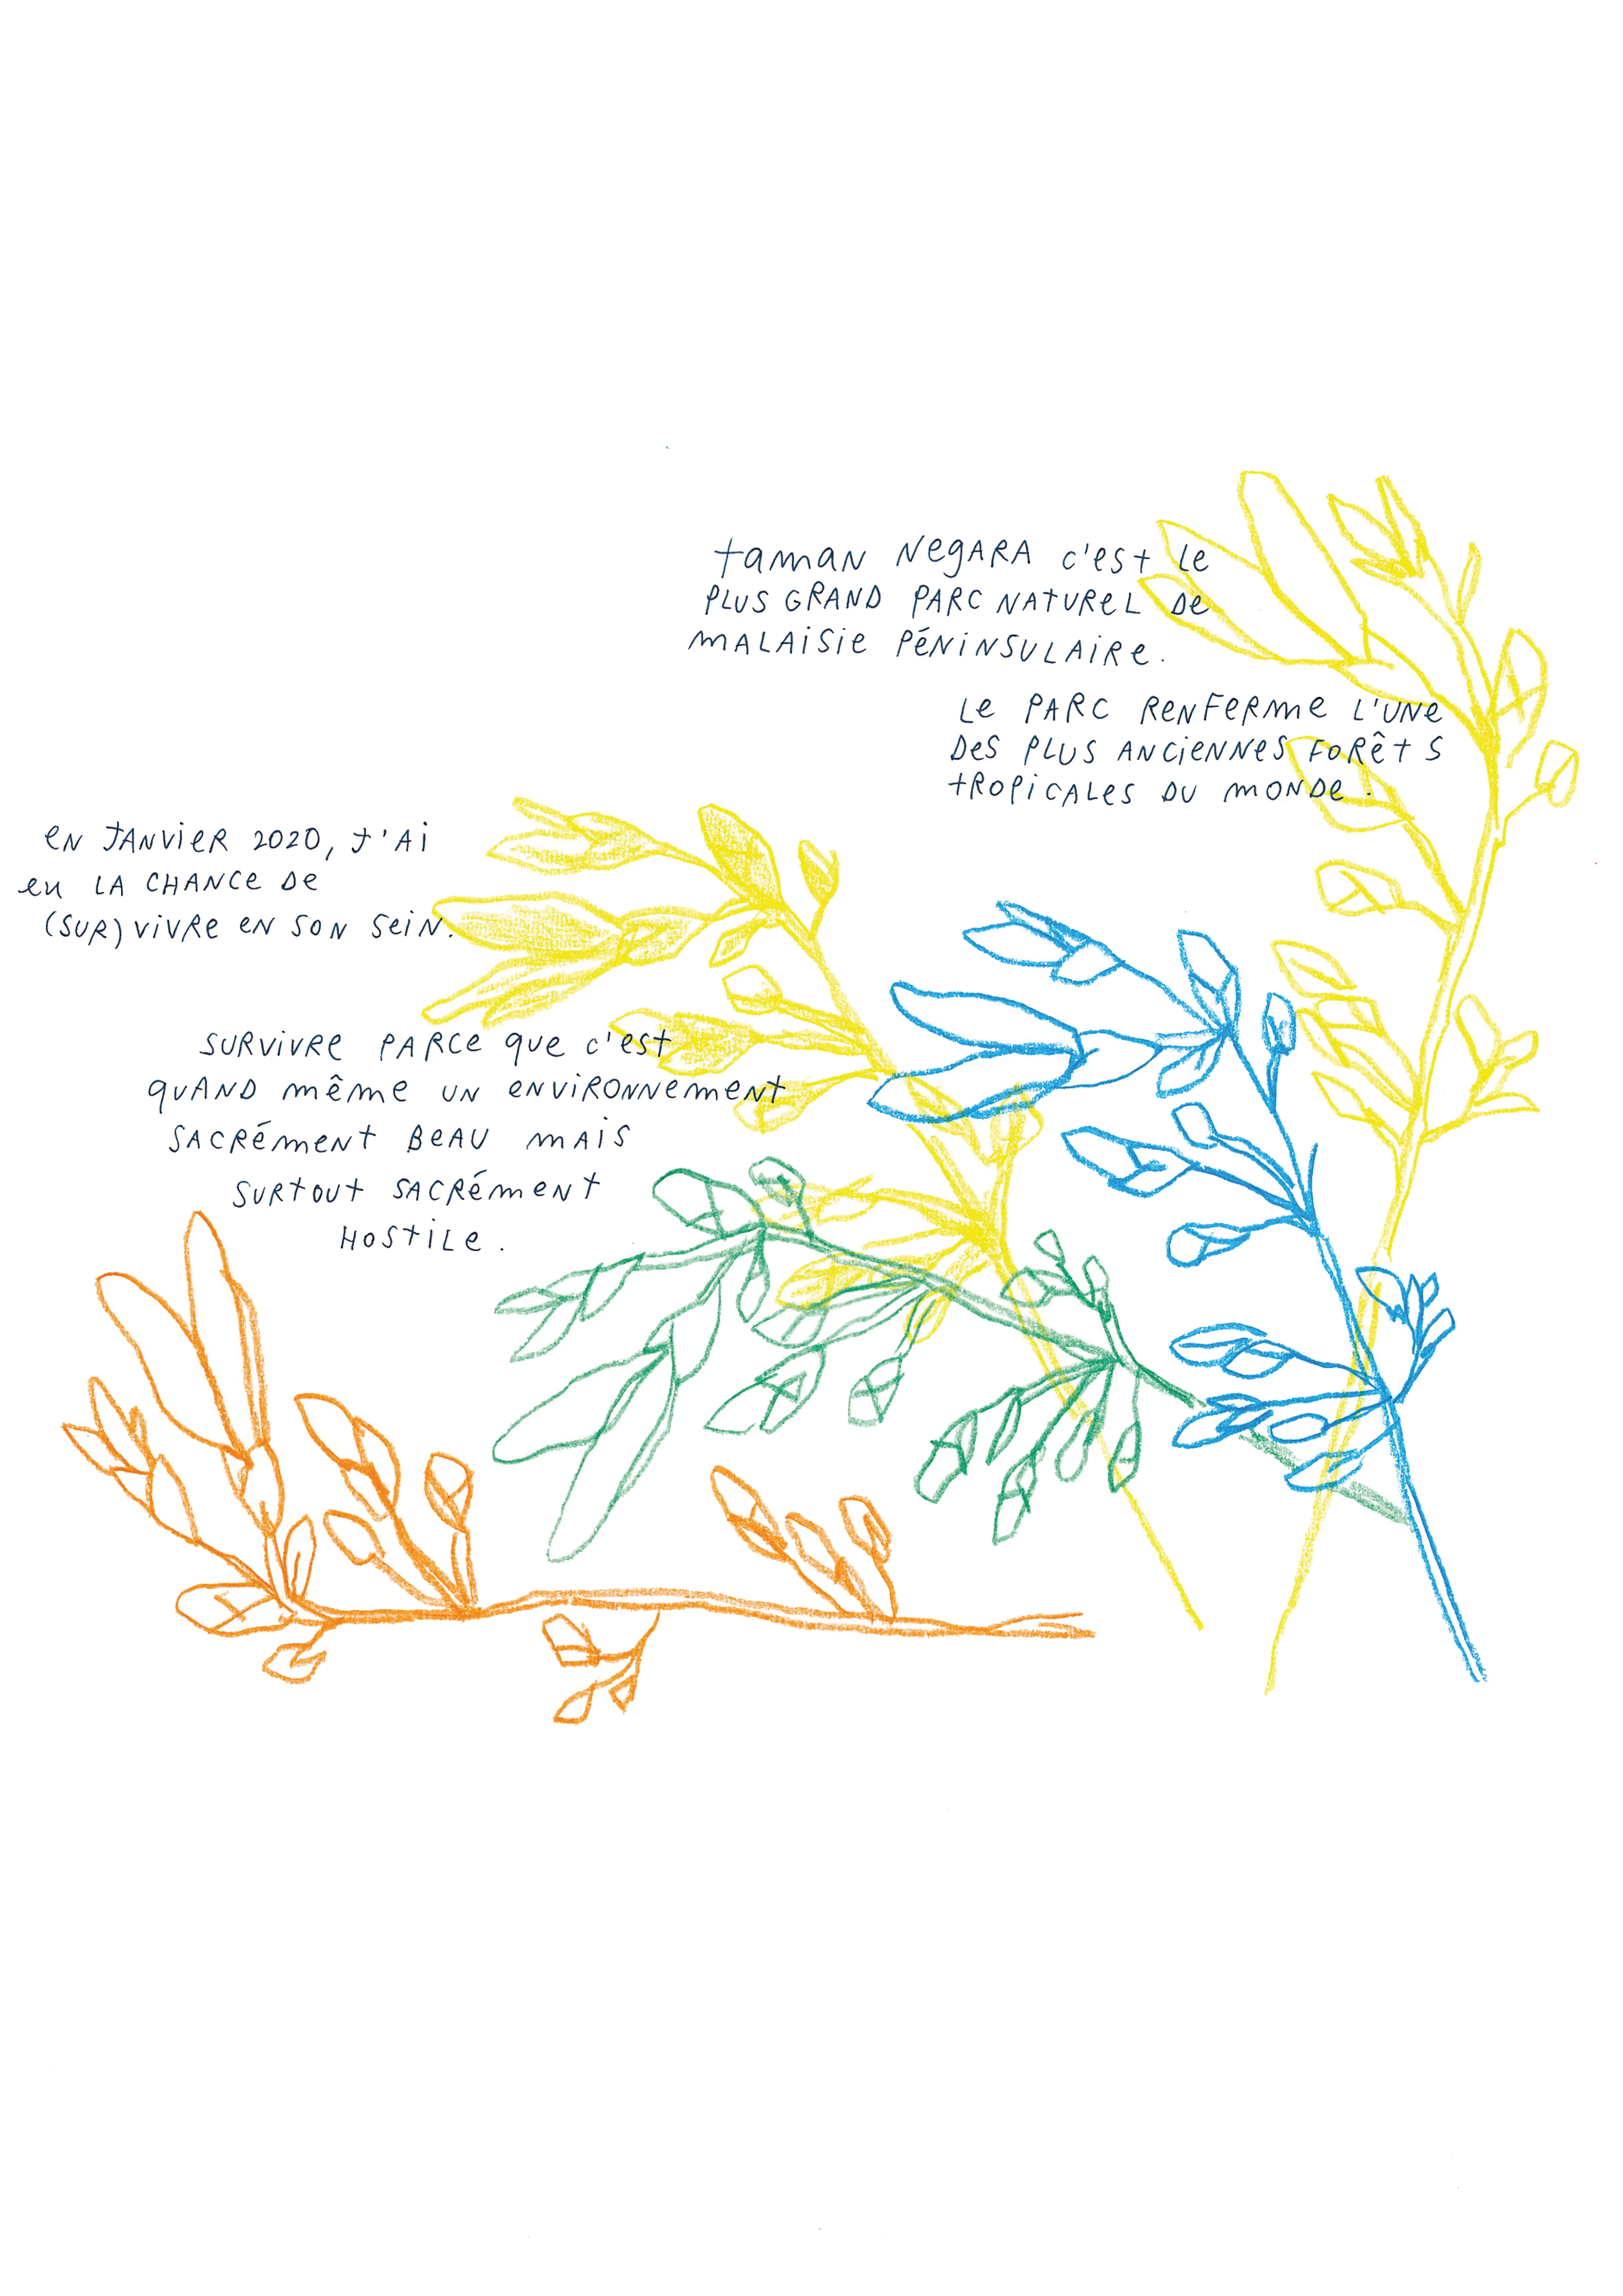 taman Negara c'est le
plus grand parc naturel de
malaisie péninsulaire.
Le parc renferme l'une
des plus anciennes forêts
tropicales du monde.
en janvier 2020, j'ai
eu la chance de
(sur)vivre en son sein.
survivre parce que c'est
quand même un environnement
sacrément beau mais
surtout sacrément
hostile.